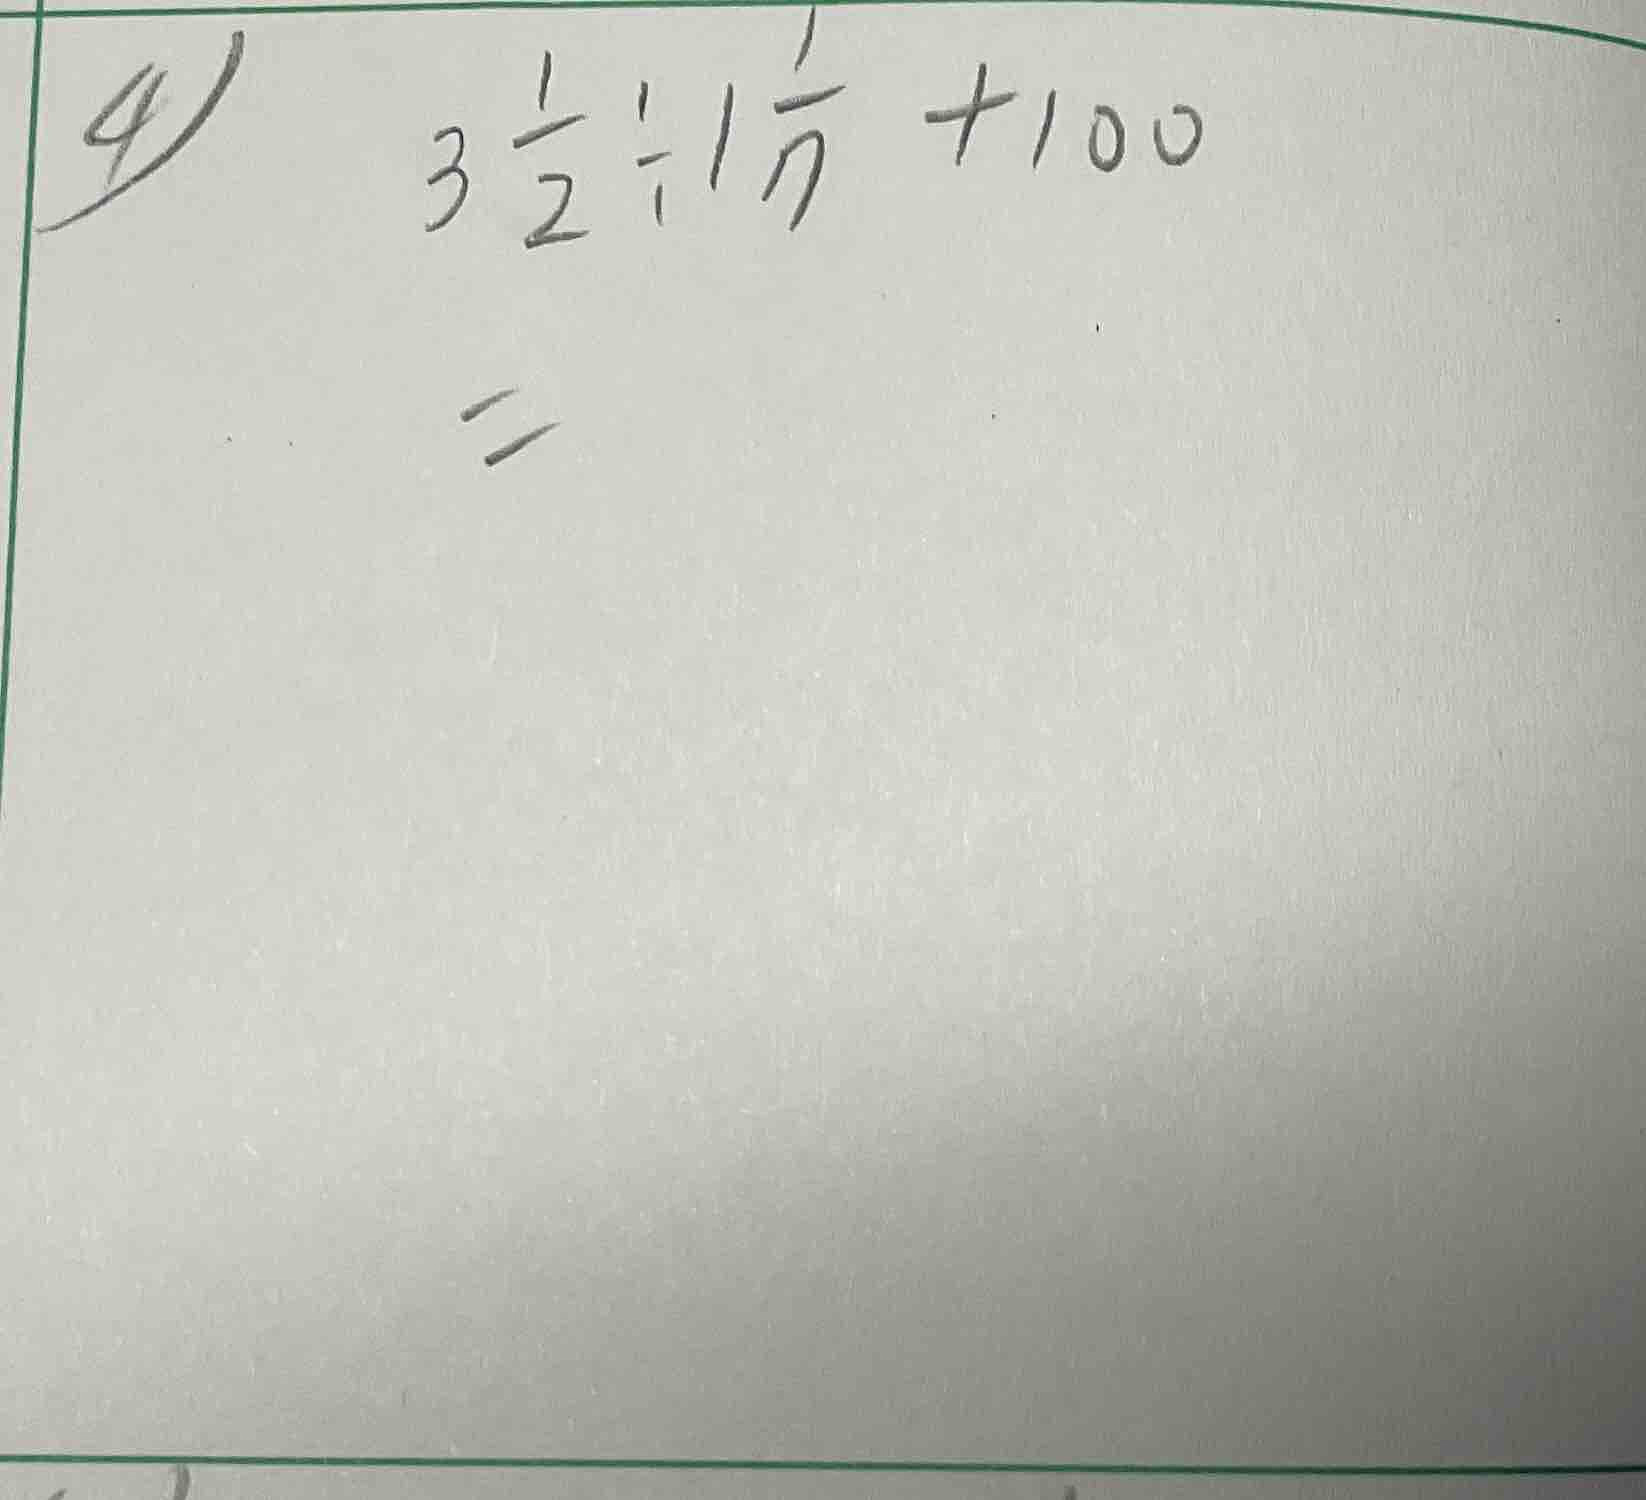 4) 3 1/2 ÷ 1 1/7 + 100
=